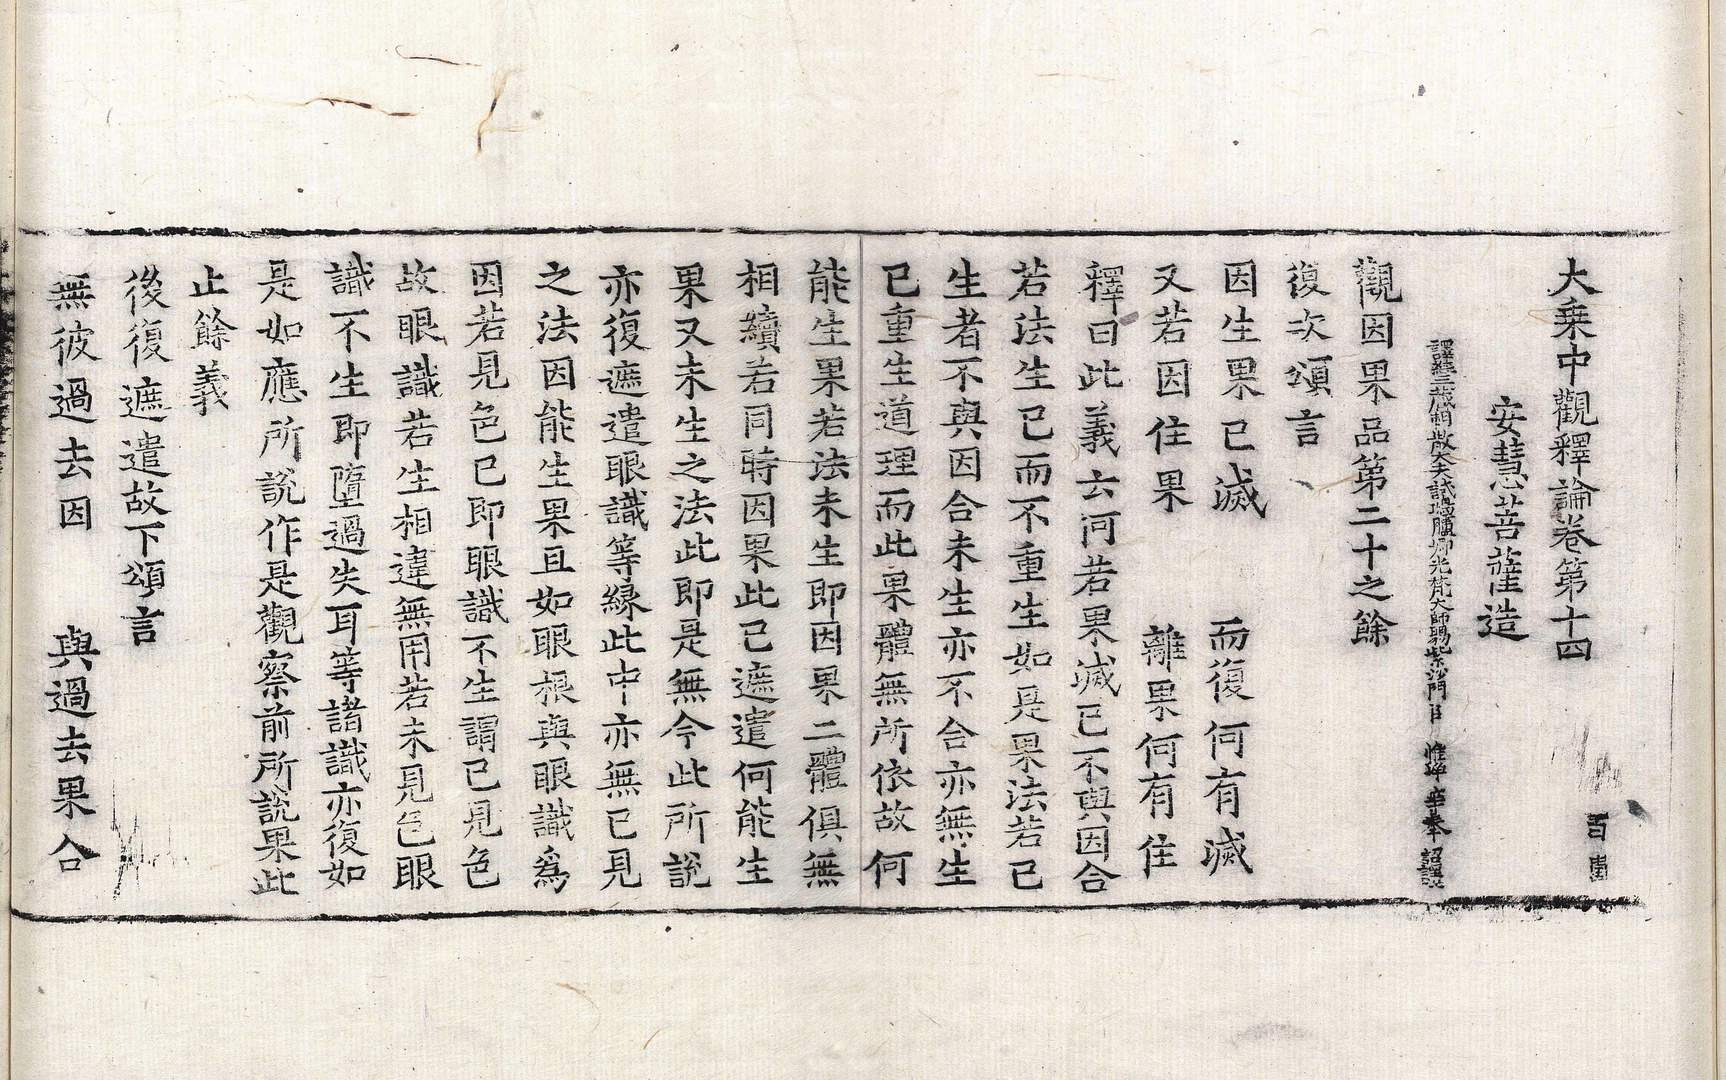 大乘中觀釋論卷第十四
安慧菩薩造
譯經三藏朝散大夫試鴻臚卿光梵大師賜紫沙門臣惟淨等奉 詔譯
觀因果品第二十之餘
復次頌言
因生果已滅 而復何有滅
又若因住果 離果何有住
釋曰此義云何若果滅已不與因合
若法生已而不重生如是果法若已
生者不與因合未生亦不合亦無生
已重生道理而此果體無所依故何
能生果若法未生即因果二體俱無
相續若同時因果此已遮遣何能生
果又未生之法此即是無今此所說
亦復遮遣眼識等緣此中亦無已見
之法因能生果且如眼根與眼識爲
因若見色已即眼識不生謂已見色
故眼識若生相違無用若未見色眼
識不生即墮過失耳等諸識亦復如
是如應所說作是觀察前所說果此
止餘義
後復遮遣故下頌言
無彼過去因 與過去果合